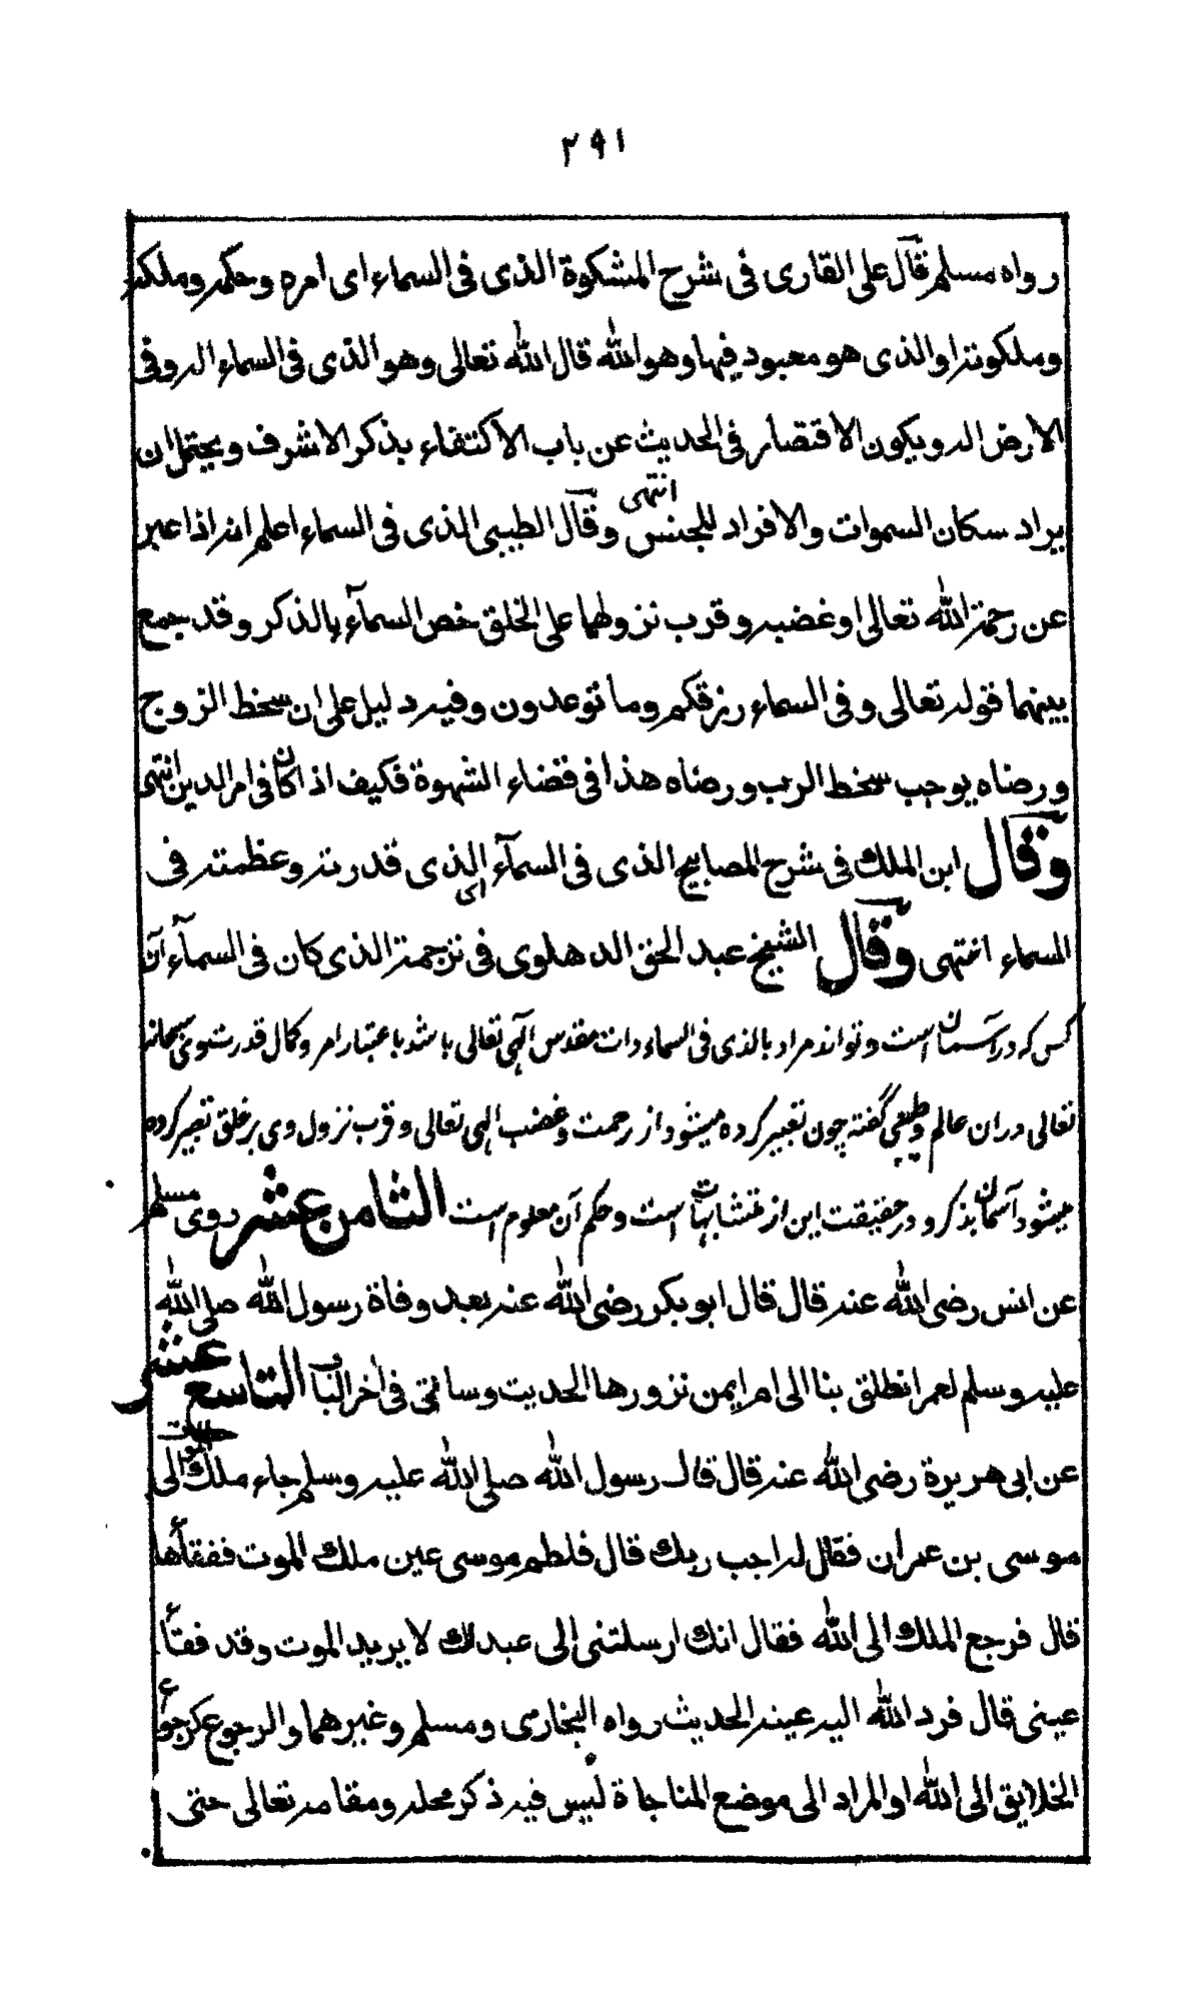 ۲۹۱
رواه مسلم قال علی القاری فی شرح المشکوة الذی فی السماء ای امره وحکمه وملکه
وملکوته او الذی هو معبود فیها وهو الله قال الله تعالی وهو الذی فی السماء اله وفی
الارض اله ویکون الاقتصار فی الحدیث عن باب الاکتفاء بذکر الاشرف ویحتمل ان
یراد سکان السموات والافراد للجنس انتهی وقال الطیبی الذی فی السماء اعلم انه اذا عبر
عن رحمة الله تعالی او غضبه وقرب نزولهما علی الخلق خص السمآء بالذکر وقد جمع
بینهما قوله تعالی وفی السماء رزقکم وما توعدون وفیه دلیل علی ان سخط الزوج
ورضاه یوجب سخط الرب ورضاه هذا فی قضاء الشهوة فکیف اذا کان فی امر الدین انتهی
وقال ابن الملك فی شرح المصابیح الذی فی السمآء ای الذی قدرته وعظمته فی
السماء انتهی وقال الشیخ عبد الحق الدهلوی فی ترجمة الذی کان فی السمآء آن
کس که در آسمان است وتواند مراد بالذی فی السماء ذات مقدس الٓهی تعالی باشد باعتبار امر وکمال قدرت وی سبحانه
تعالی دران عالم وطیبی گفته چون تعبیر کرده میشود از رحمت وغضب الهی تعالی وقرب نزول وی بر خلق تعبیر کرده
میشود آسمان بذکر و در حقیقت این از متشابهات است وحکم آن معلوم است الثامن عشر روی مسلم
عن انس رضی الله عنه قال قال ابو بکر رضی الله عنه بعد وفاة رسول الله صلی الله
علیه وسلم لعمر انطلق بنا الی ام ایمن نزورها الحدیث وسیاتی فی اخر الباب التاسع عشر حدیث
عن ابی هریرة رضی الله عنه قال قال رسول الله صلی الله علیه وسلم جاء ملك الموت الی
موسی بن عمران فقال له اجب ربك قال فلطم موسی عین ملك الموت ففقأها
قال فرجع الملك الی الله فقال انك ارسلتنی الی عبد لك لا یرید الموت وقد فقأ
عینی قال فرد الله الیه عینه الحدیث رواه البخاری ومسلم وغیرهما والرجوع کرجوع
الخلایق الی الله او المراد الی موضع المناجاة لیس فیه ذکر محله ومقامه تعالی حتی